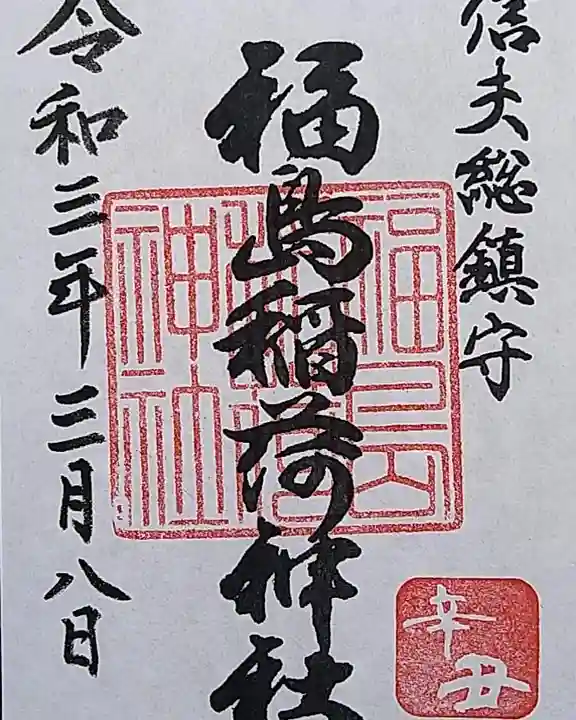 信夫総鎮守
福島稲荷神社
福島稲荷神社
令和三年三月八日
辛丑